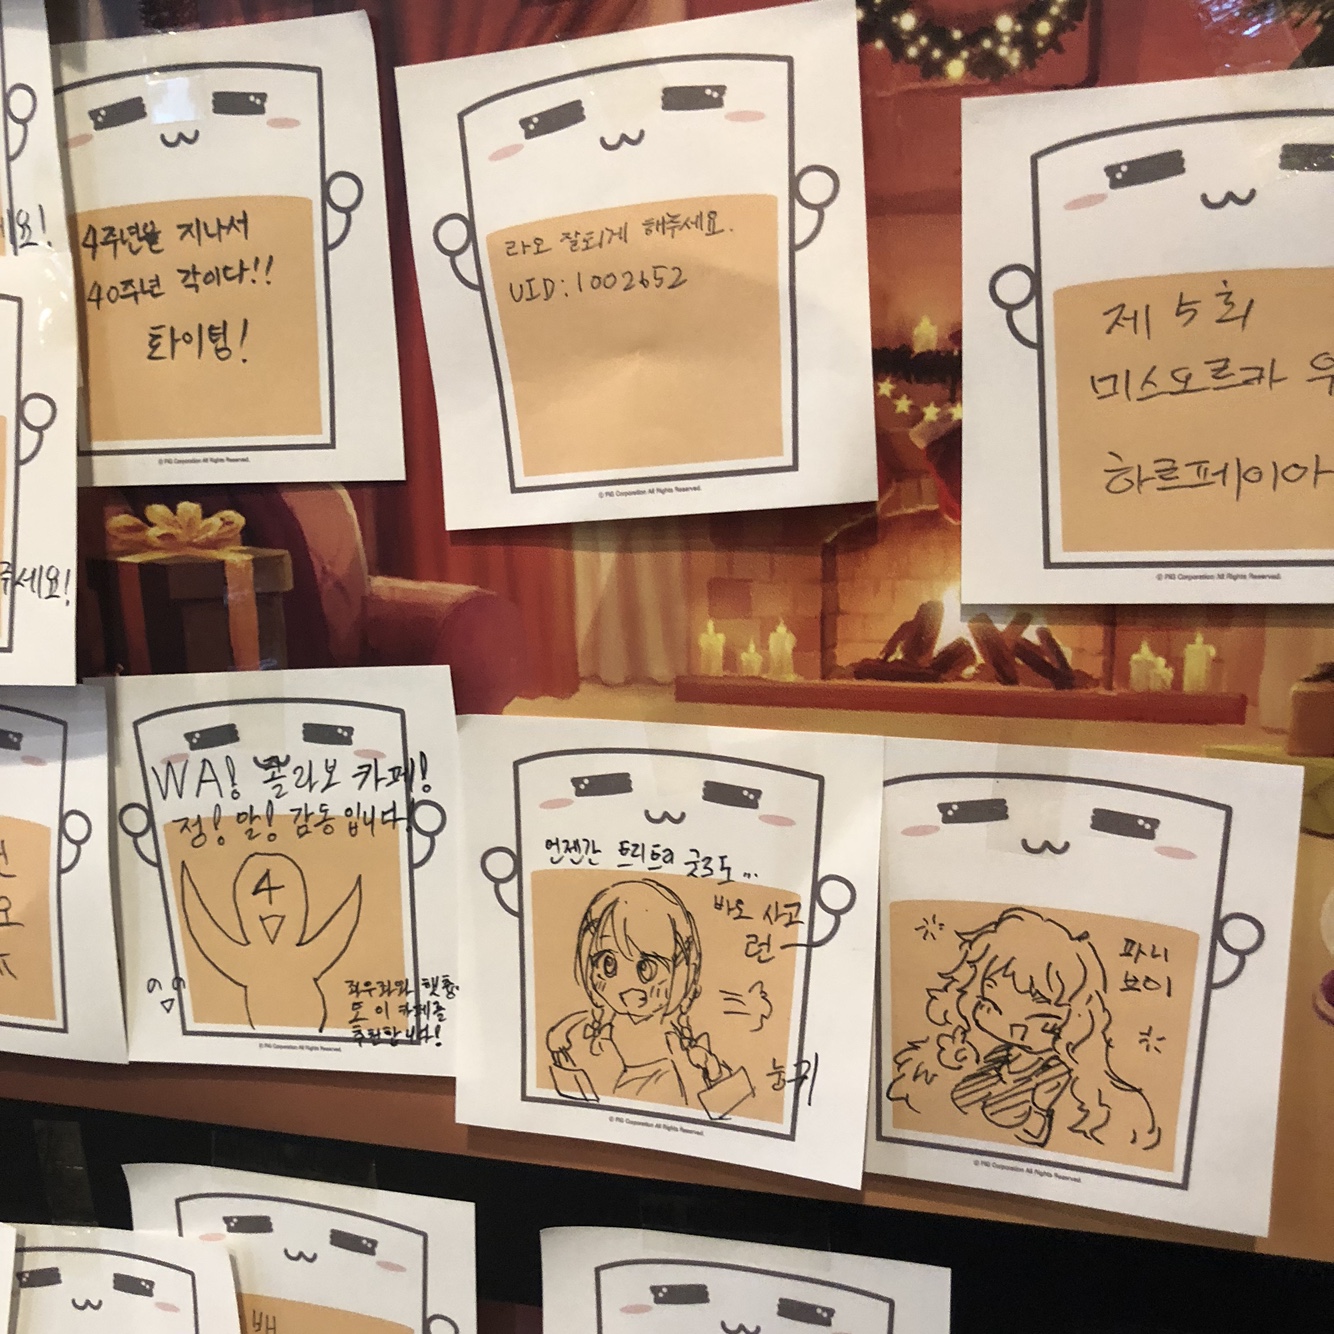 4주년을 지나서
40주년 각이다!!
화이팅!
© PiG Corporation All Rights Reserved.
라오 잘되게 해주세요.
UID:1002652
© PiG Corporation All Rights Reserved.
제 5회
미스오르카 우
하르페이아
© PiG Corporation All Rights Reserved.
요!
주세요!
WA! 콜라보 카페!
정! 말! 감동입니다!
4
좌우좌와 햇춍
도 이 카페를
추천합니다!
© PiG Corporation All Rights Reserved.
언젠간 트리테 굿즈도...
바오 사고
런
눙귀
© PiG Corporation All Rights Reserved.
파니
보이
© PiG Corporation All Rights Reserved.
요
배